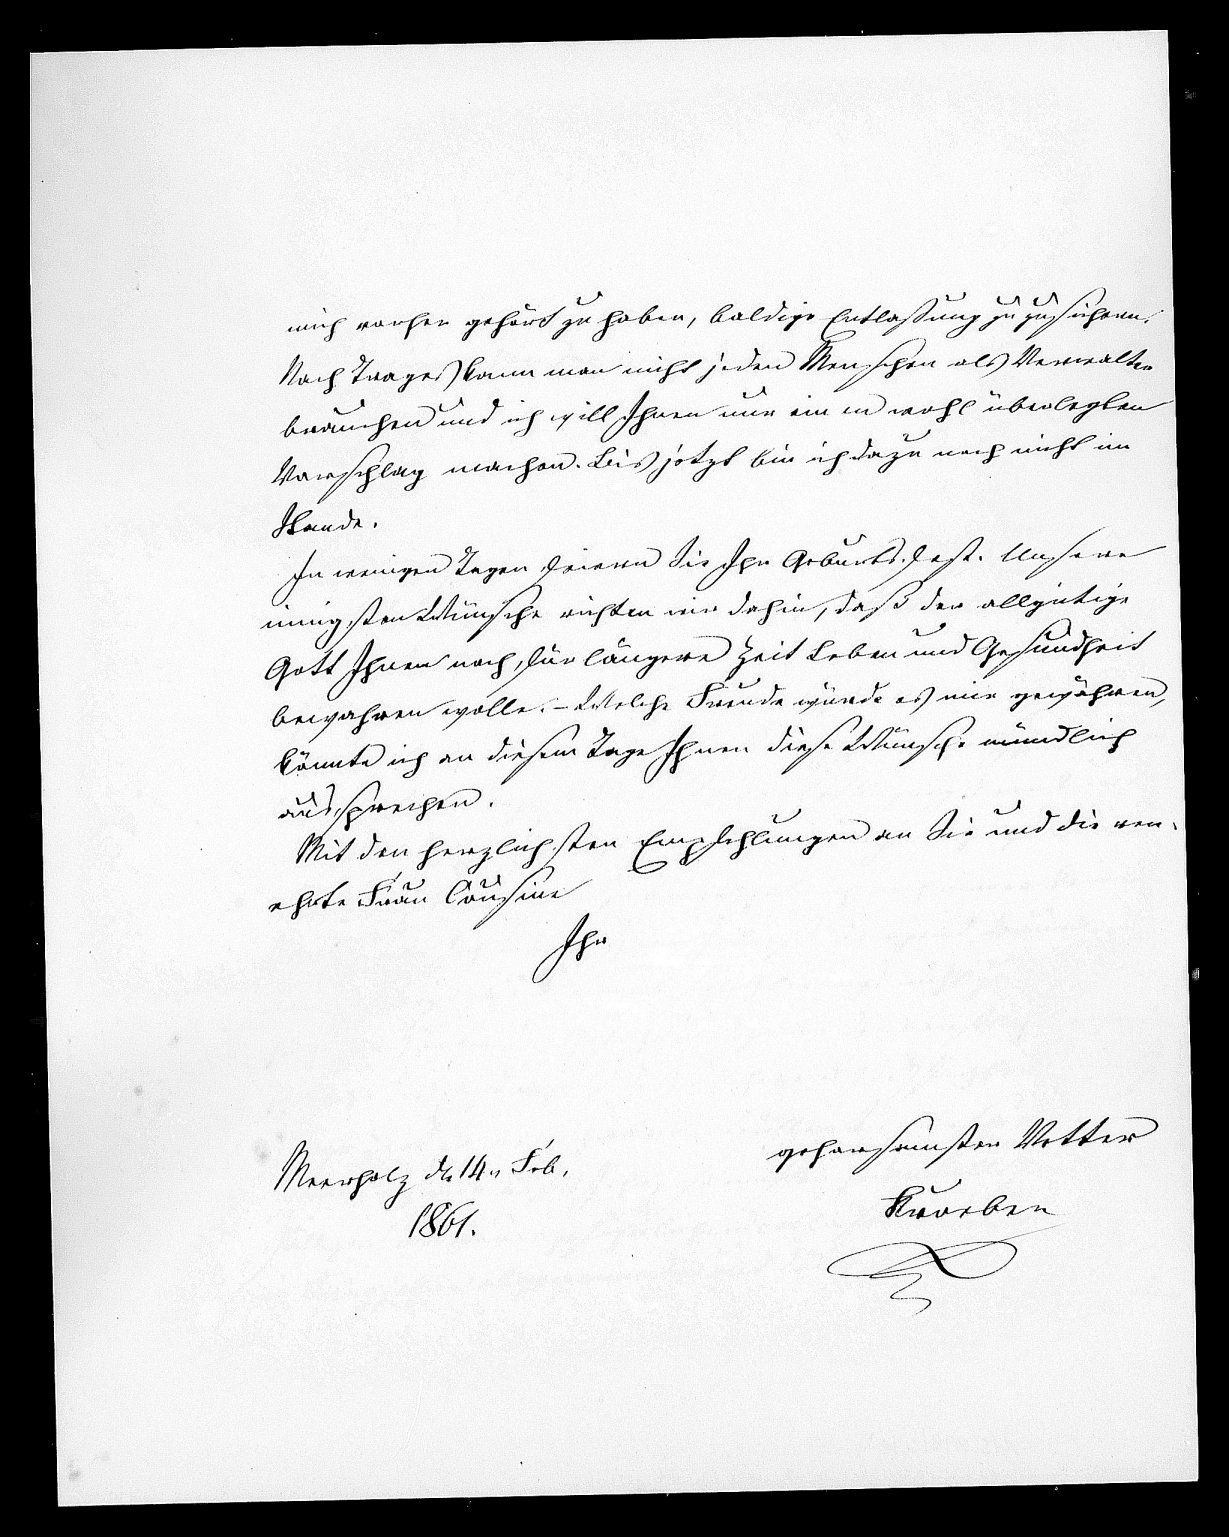 mich vorher gehört zu haben, baldige Entlaßung zuzusichern.
Nach Trages kann man nicht jeden Menschen als Verwalter
brauchen und ich will Ihnen nur einen wohl überlegten
Vorschlag machen. Bis jetzt bin ich dazu noch nicht im
Stande.
In wenigen Tagen feiern Sie Ihr Geburts-Fest. Unsere
innigsten Wünsche richten wir dahin, daß der allgütige
Gott Ihnen noch für längere Zeit Leben und Gesundheit
bewahren wolle. – Welche Freude würde es mir gewähren,
könnte ich an diesem Tage Ihnen diese Wünsche mündlich
aussprechen.
Mit den herzlichsten Empfehlungen an Sie und die ver-
ehrte Frau Cousine
Ihr
gehorsamster Vetter
Meerholz d. 14n Feb.
1861.